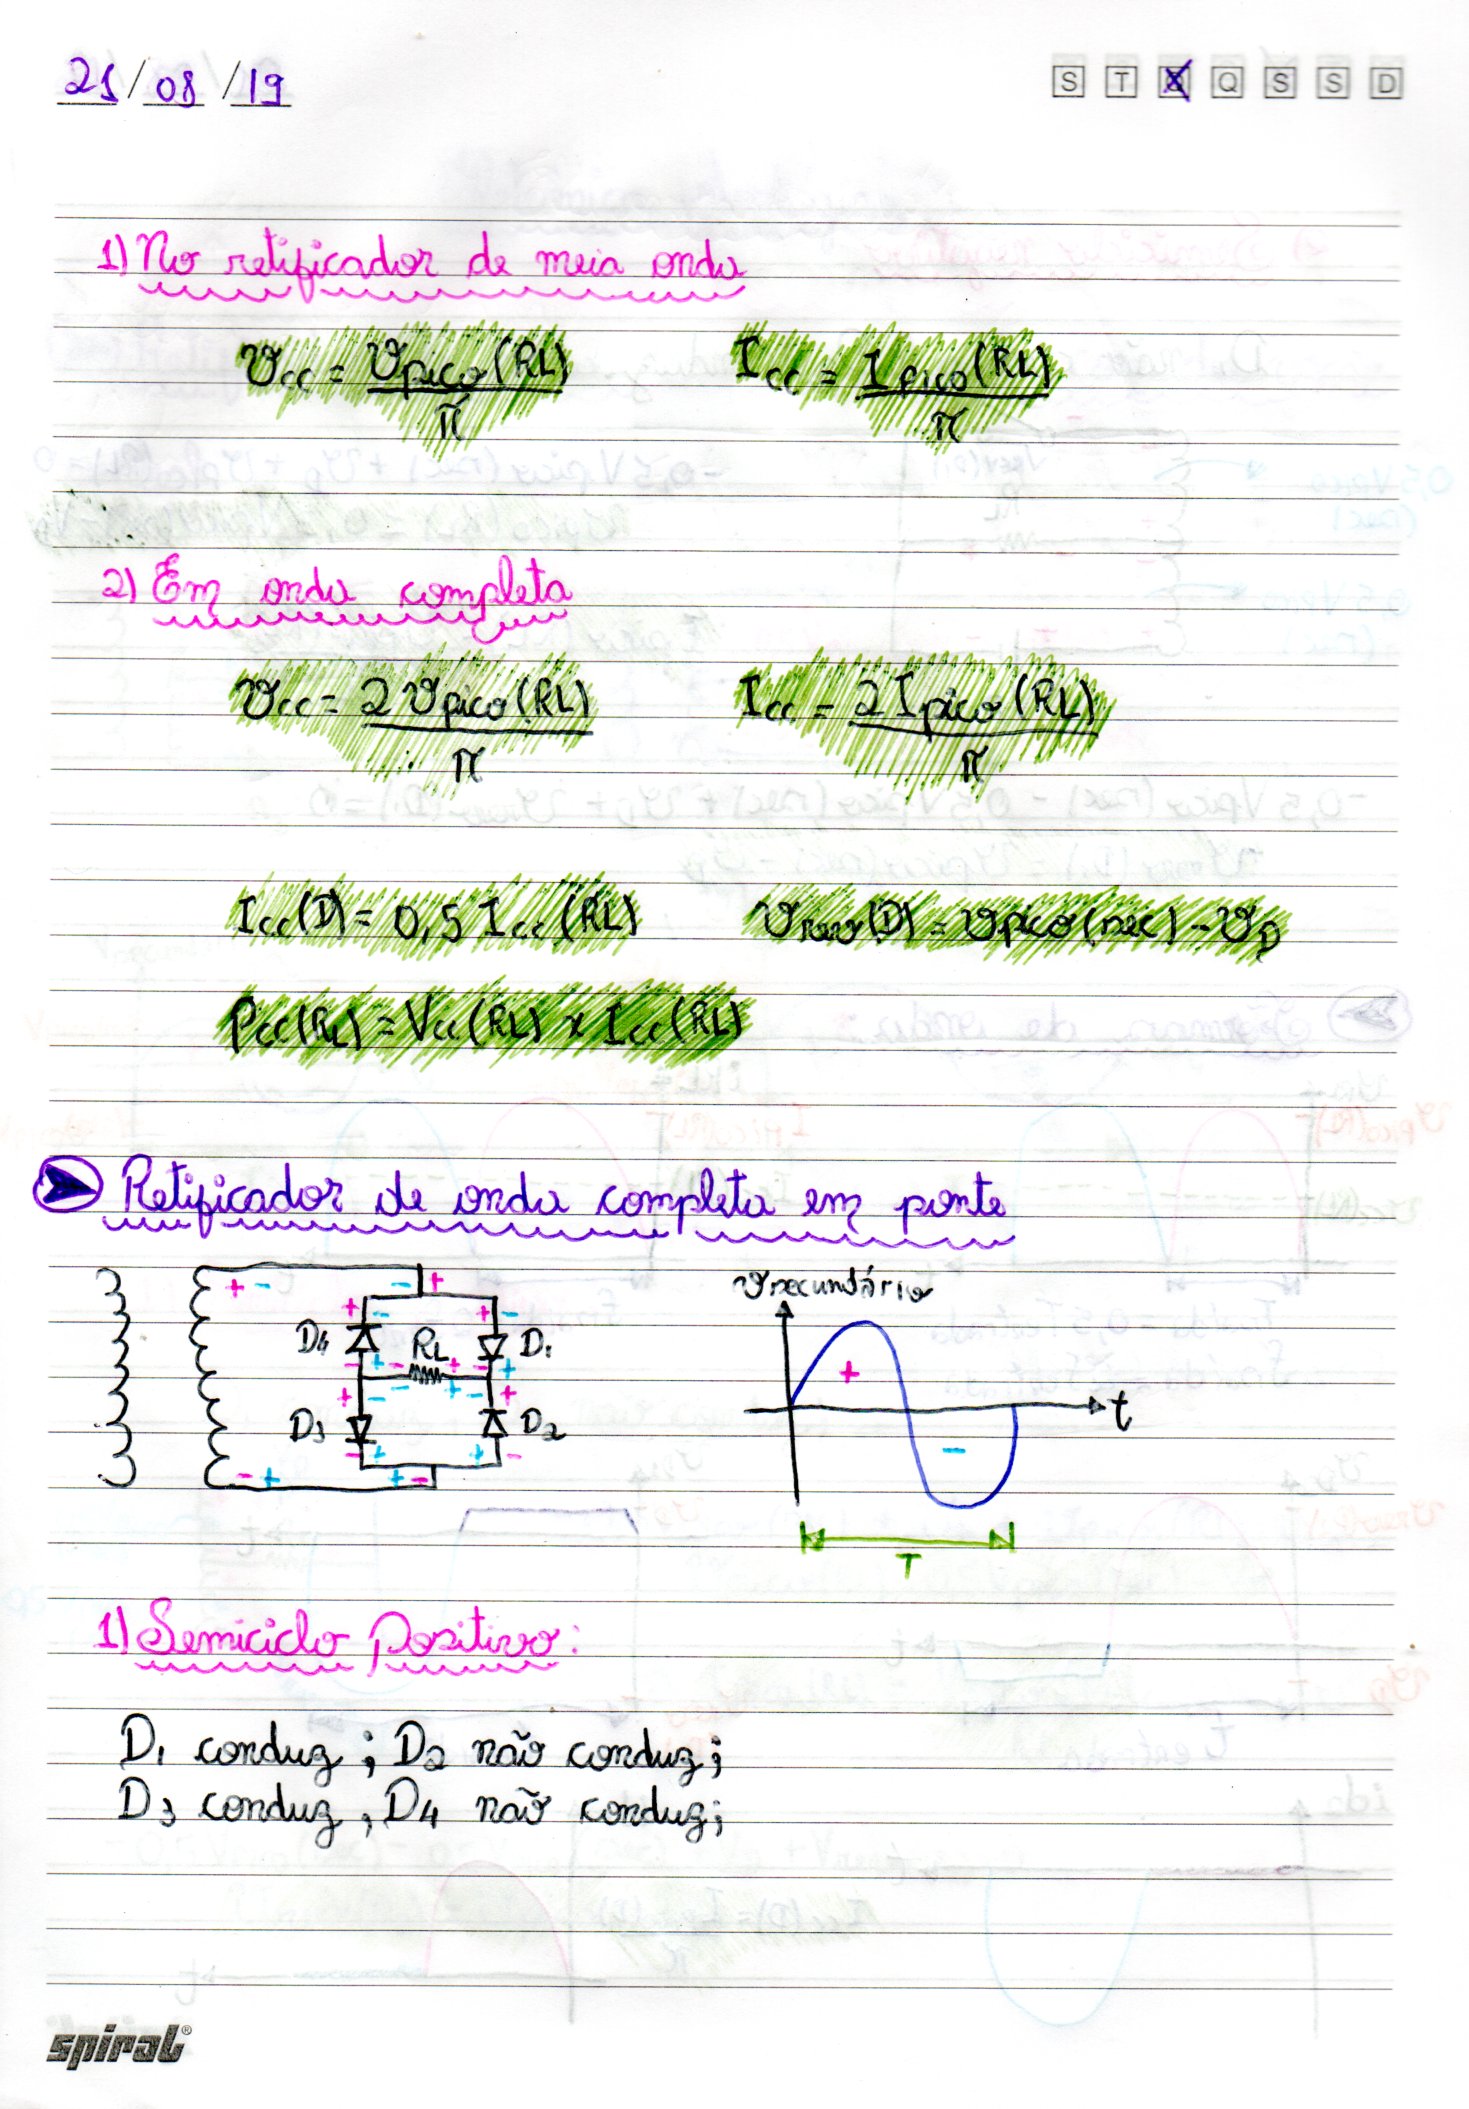 21/08/19
S T Q Q S S D
1) No retificador de meia onda
Vcc = Vpico(RL)/π Icc = Ipico(RL)/π
2) Em onda completa
Vcc = 2Vpico(RL)/π Icc = 2Ipico(RL)/π
Icc(D) = 0,5 Icc(RL) Vrev(D) = Vpico(sec) - VD
Pcc(RL) = Vcc(RL) x Icc(RL)
Retificador de onda completa em ponte
Vsecundário
D4 RL D1
D3 D2
t
T
1) Semiciclo Positivo:
D1 conduz; D2 não conduz;
D3 conduz, D4 não conduz;
spiral®